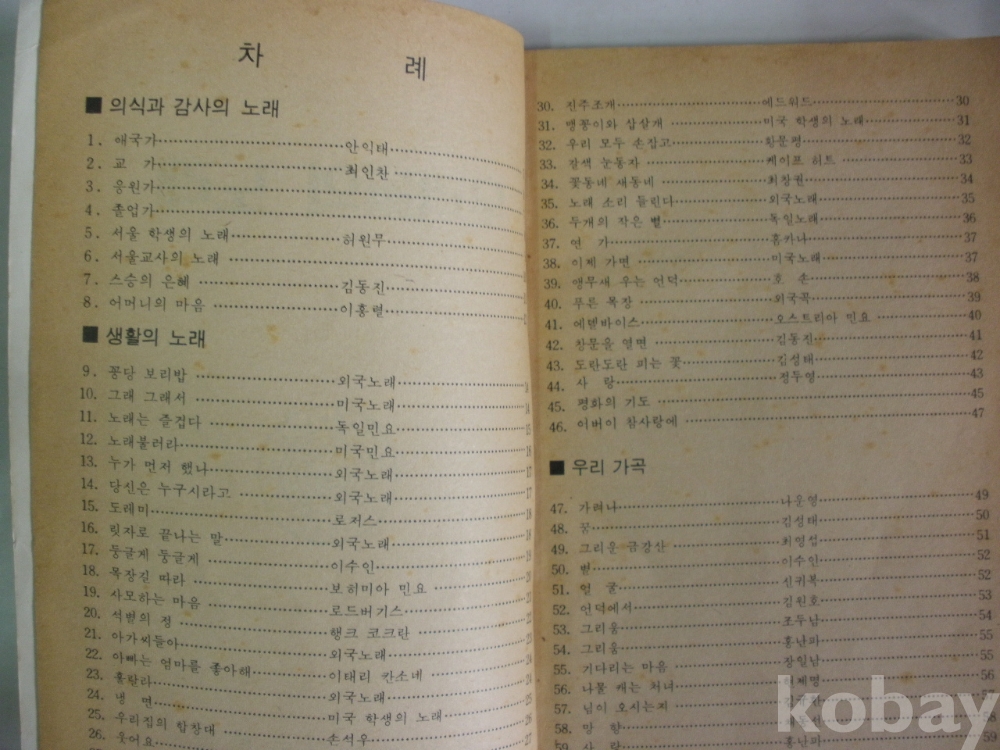 차 례
■ 의식과 감사의 노래
1. 애국가 안익태
2. 교 가 최인찬
3. 응원가
4. 졸업가
5. 서울 학생의 노래 허원무
6. 서울교사의 노래
7. 스승의 은혜 김동진
8. 어머니의 마음 이흥렬
■ 생활의 노래
9. 꽁당 보리밥 외국노래
10. 그래 그래서 미국노래 14
11. 노래는 즐겁다 독일민요 15
12. 노래불러라 미국민요 16
13. 누가 먼저 했나 외국노래 17
14. 당신은 누구시라고 외국노래 17
15. 도레미 로저스 18
16. 릿자로 끝나는 말 외국노래
17. 둥글게 둥글게 이수인
18. 목장길 따라 보히미아 민요
19. 사모하는 마음 로드버기스
20. 석별의 정 행크 코크란 22
21. 아가씨들아 외국노래
22. 아빠는 엄마를 좋아해 이태리 칸소네 24
23. 훌랄라 외국노래
24. 냉 면 미국 학생의 노래
25. 우리집의 합창대 손석우
26. 웃어요 27
30. 진주조개 에드워드 30
31. 맹꽁이와 삽살개 미국 학생의 노래 31
32. 우리 모두 손잡고 황문평 32
33. 갈색 눈동자 케이프 허트 33
34. 꽃동네 새동네 최창권 34
35. 노래 소리 들린다 외국노래 35
36. 두개의 작은 별 독일노래 36
37. 연 가 홈카나 37
38. 이제 가면 미국노래 37
39. 앵무새 우는 언덕 호 손 38
40. 푸른 목장 외국곡 39
41. 에델바이스 오스트리아 민요 40
42. 창문을 열면 김동진 41
43. 도란도란 피는 꽃 김성태 42
44. 사 랑 정두영 44
45. 평화의 기도 45
46. 어버이 참사랑에 47
■ 우리 가곡
47. 가려나 나운영 49
48. 꿈 김성태 50
49. 그리운 금강산 최영섭 51
50. 별 이수인 52
51. 얼 굴 신귀복 52
52. 언덕에서 김원호 53
53. 그리움 조두남 54
54. 그리움 홍난파 55
55. 기다리는 마음 장일남 55
56. 나물 캐는 처녀 56
57. 님이 오시는지
58. 망 향
59. 사 랑 홍난파 59
kobay